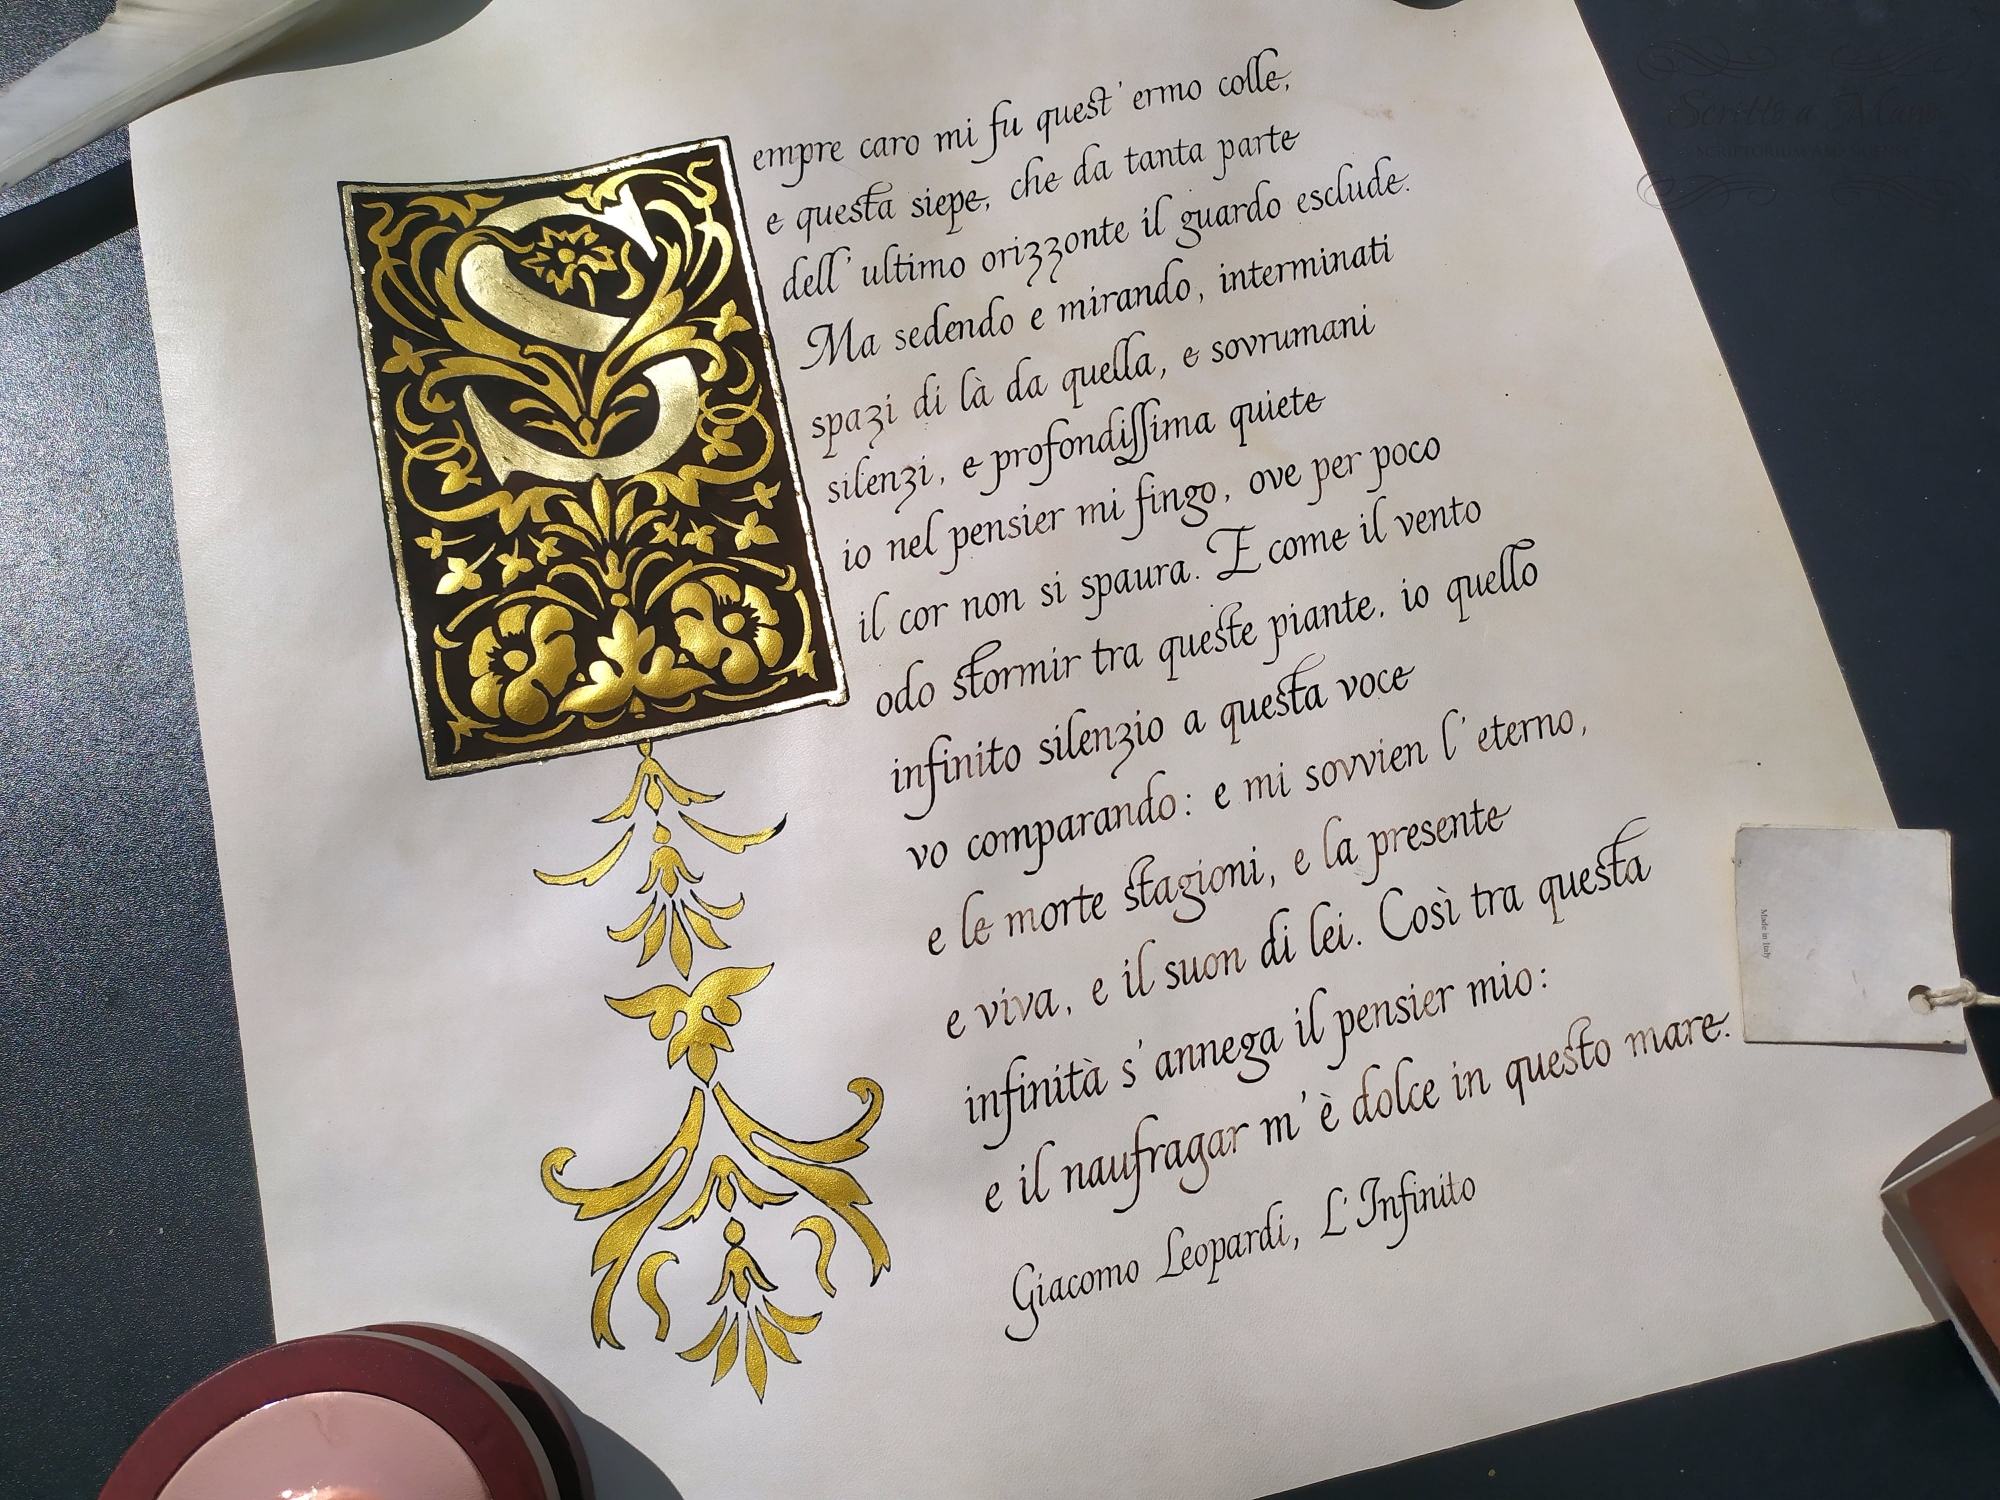 Sempre caro mi fu quest'ermo colle,
e questa siepe, che da tanta parte
dell'ultimo orizzonte il guardo esclude.
Ma sedendo e mirando, interminati
spazi di là da quella, e sovrumani
silenzi, e profondissima quiete
io nel pensier mi fingo, ove per poco
il cor non si spaura. E come il vento
odo stormir tra queste piante, io quello
infinito silenzio a questa voce
vo comparando: e mi sovvien l'eterno,
e le morte stagioni, e la presente
e viva, e il suon di lei. Così tra questa
infinità s'annega il pensier mio:
e il naufragar m'è dolce in questo mare.
Giacomo Leopardi, L'Infinito
Made in Italy
Scritto a Mano